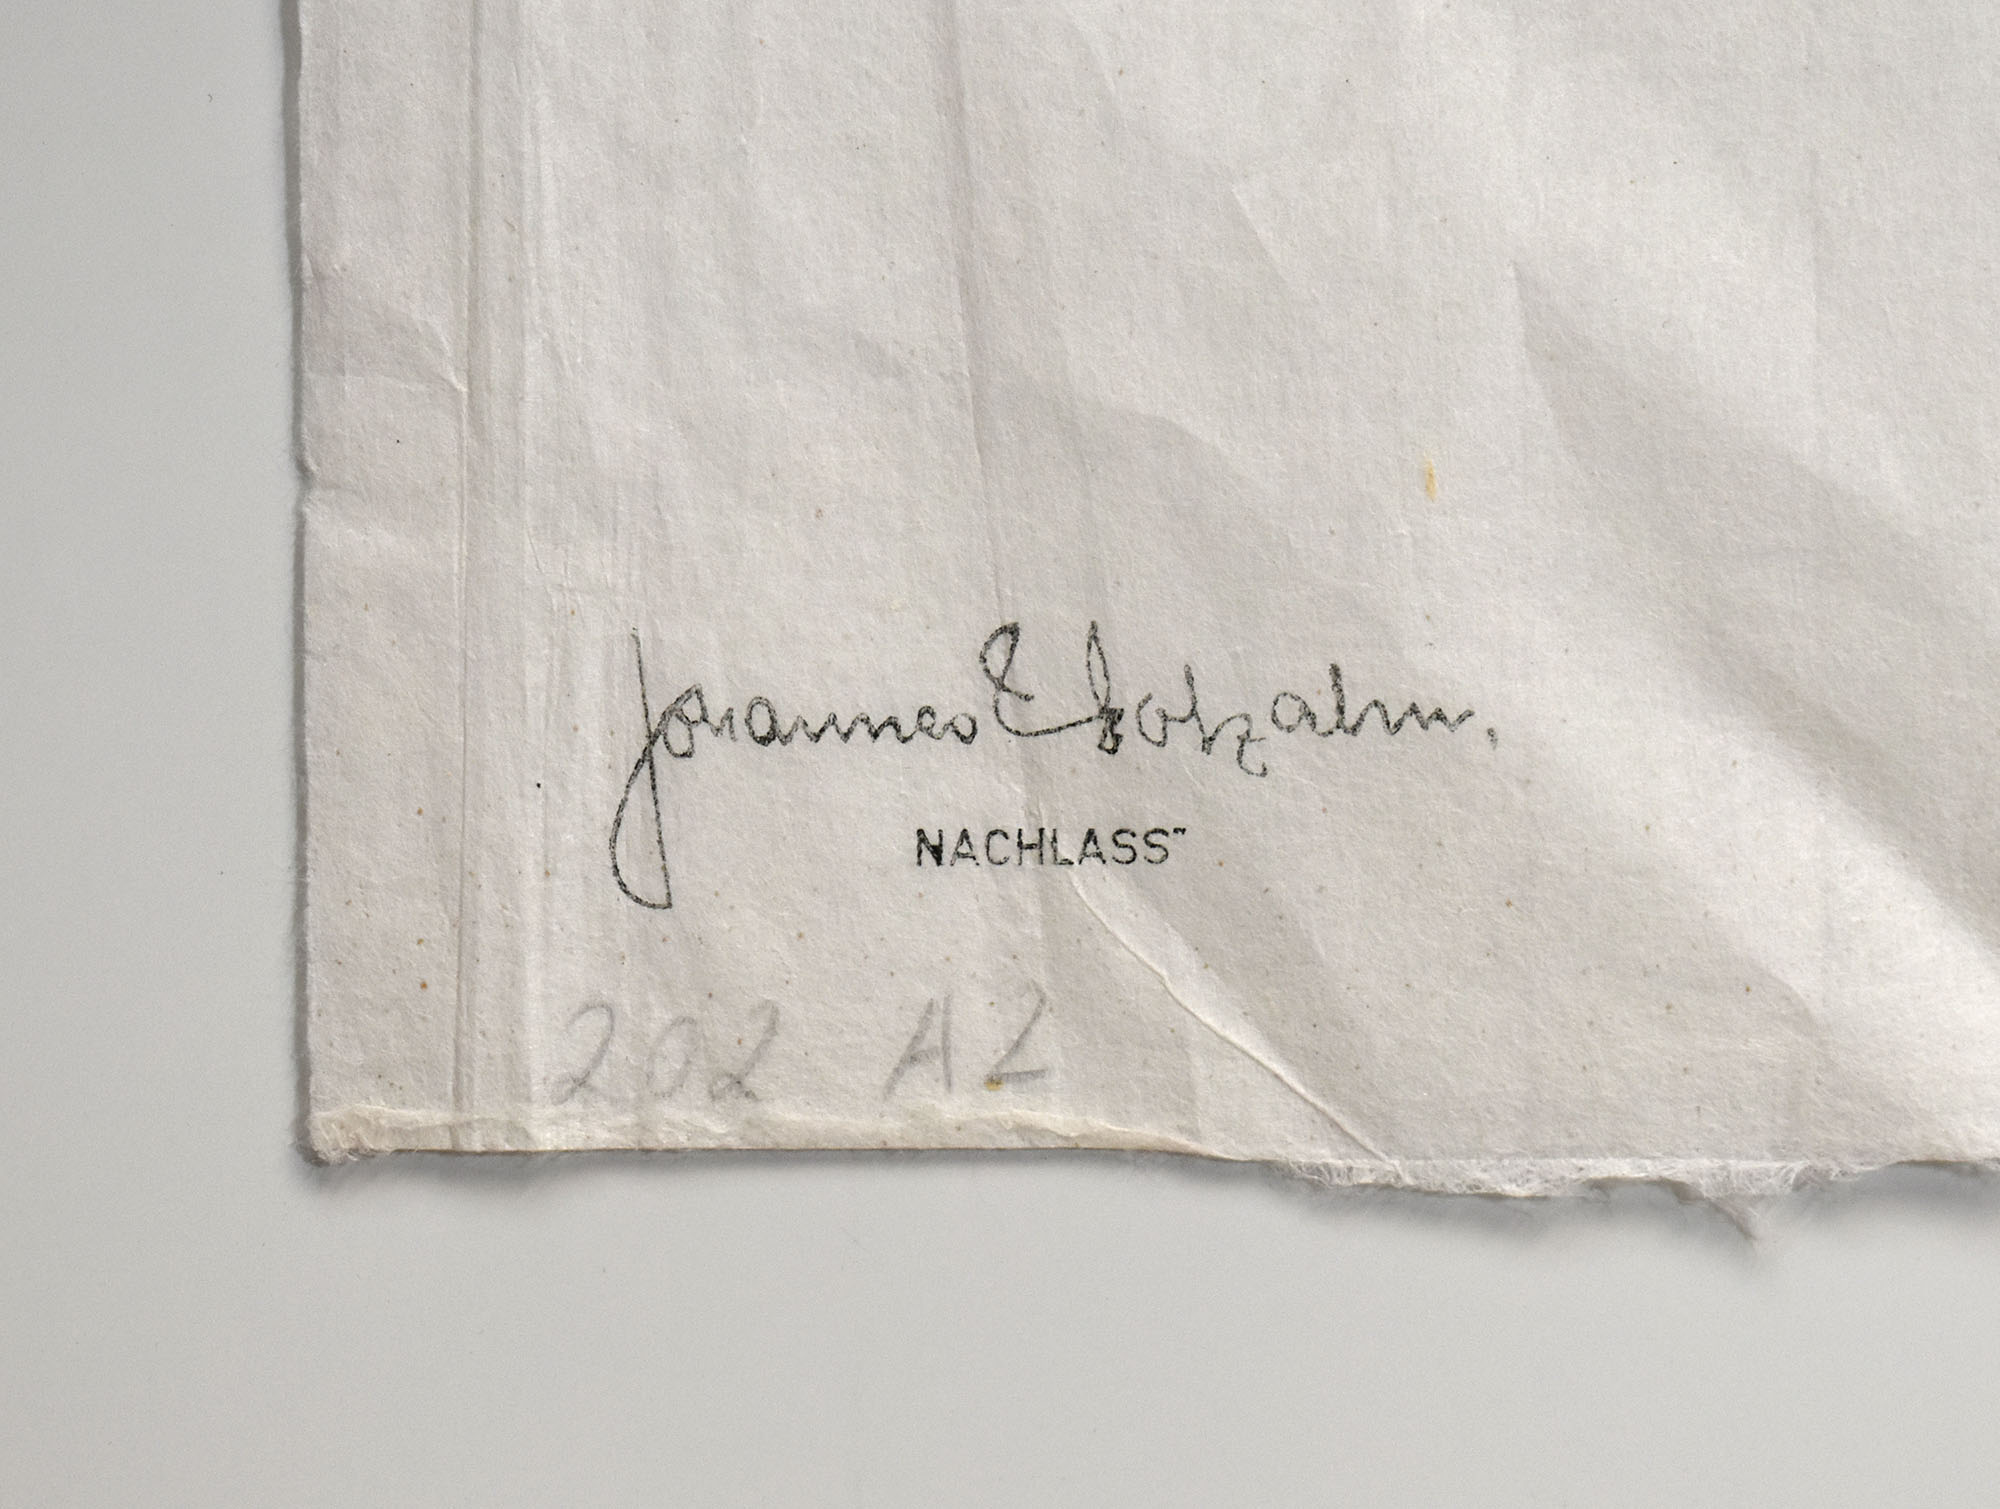 Johannes Molzahn.
NACHLASS
202 A2